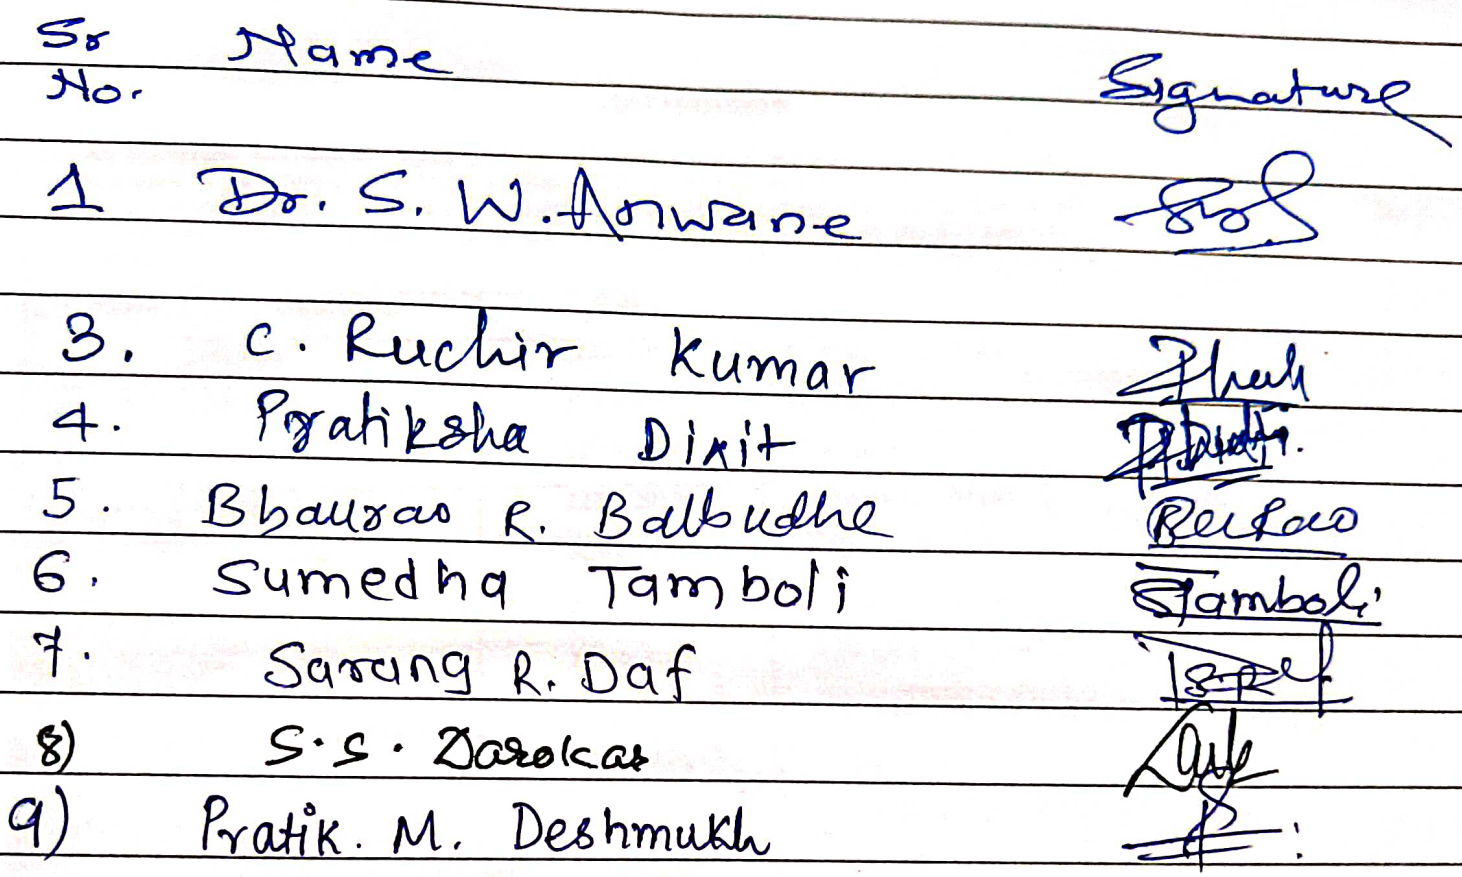 Sr No. Name Signature
1 Dr. S. W. Anwane
3. C. Ruchir Kumar
4. Pratiksha Dixit
5. Bhaurao R. Balbudhe
6. Sumedha Tamboli STamboli
7. Sarang R. Daf
8) S.S. Darokar
9) Pratik. M. Deshmukh